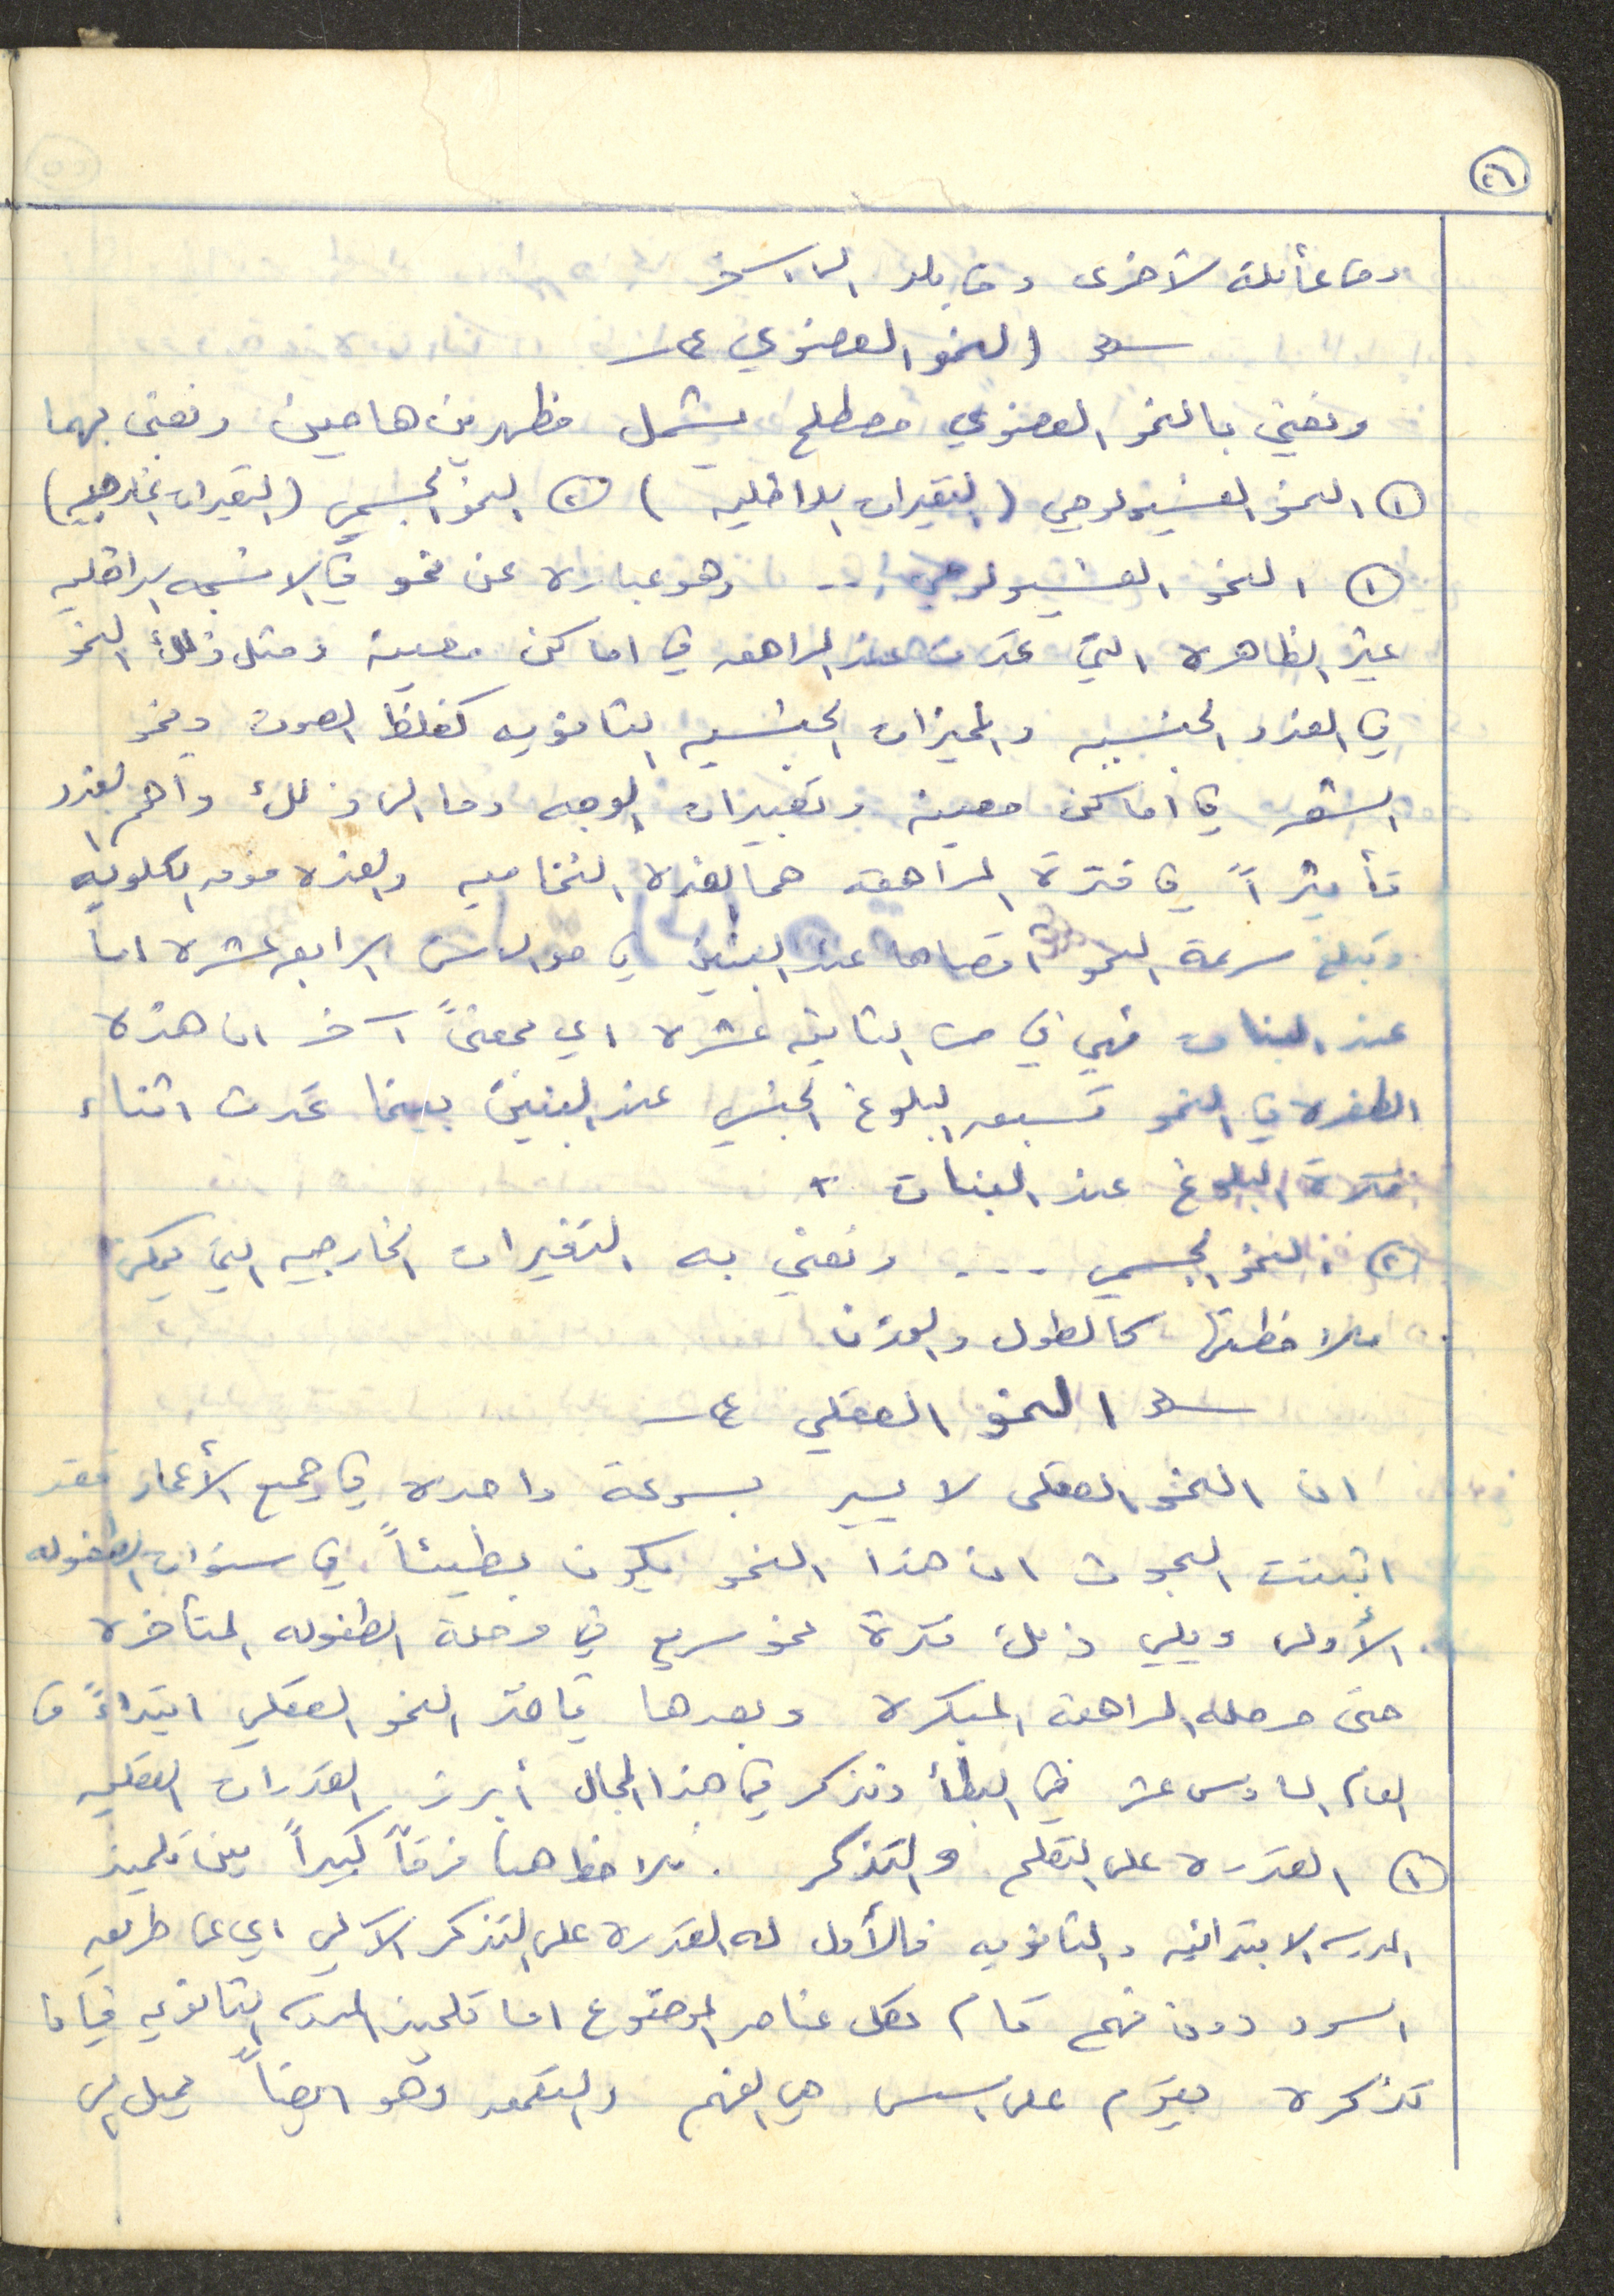 ٢٦
ومن عائلة لأخرى ومن بلد الى آخر
النمو العضوي
ونعني بالنمو العضوي مصطلح يشمل مظهرين هامين ونعني بهما
١ النمو الفسيولوجي (التغيرات الداخلية) ٢ النمو الجسمي (التغيرات الخارجية)
١ النمو الفسيولوجي .. وهو عبارة عن نمو في الانسجه الداخليه
غير الظاهره التي تحدث عند المراهق في اماكن معينة ومثل ذلك النمو
في الغدد الجنسيه والمميزات الجنسيه الثانويه كغلظ الصوت ونمو
الشعر في أماكن معينه وتغيرات الوجه وما الى ذلك وأهم الغدد
تأثيراً في فترة المراهقه هما الغدة النخاميه والغده فوق الكلويه
وتبلغ سرعة النمو أقصاها عند البنين في حوالى سن الرابعه عشره اما
عند البنات فهي في سن الثانيه عشره اي بمعنىً آخر ان هذه
الطفره في النمو تسبق البلوغ الجنسي عند البنين بينما تحدث اثناء
فترة البلوغ عند البنات .
٢ النمو الجسمي ... ونعني به التغيرات الخارجيه التي يمكن
ملاحظتها كالطول والوزن
النمو العقلي
ان النمو العقلى لا يسير بسرعة واحده في جميع الأعمار فقد
اثبتت البحوث ان هذا النمو يكون بطيئاً في سنوات الطفوله
الأولى ويلي ذلك فترة نمو سريع في مرحلة الطفوله المتأخره
حتى مرحله المراهقه المبكرة وبعدها يأخذ النمو العقلي ابتداءً من
العام السادس عشر في البطأ ونذكر في هذا المجال أبرز القدرات العقليه
١ القدره على التعلم والتذكر . نلاحظ هنا فرقاً كبيراً بين تلميذ
المدرسه الابتدائيه والثانويه فالأول له القدره على التذكر الآلي اي عن طريق
السرد دون فهم تام لكل عناصر الموضوع اما تلميذ المدرسه الثانويه فإن
تذكره يقوم على اسس هي الفهم والتعمق وهو ايضاً يميل الى